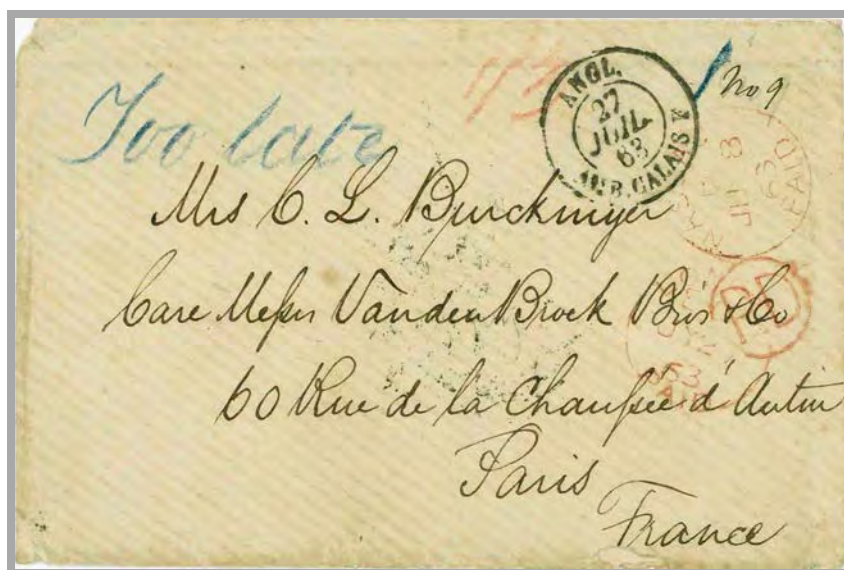 Too late
1/3
No 9
ANGL.
27
JUIL.
63
AMB. CALAIS
PAID
63
PD
63
PAID
Mrs C. L. Burckmyer
Care Messrs VandenBroek Bros & Co
60 Rue de la Chaussée d'Antin
Paris
France